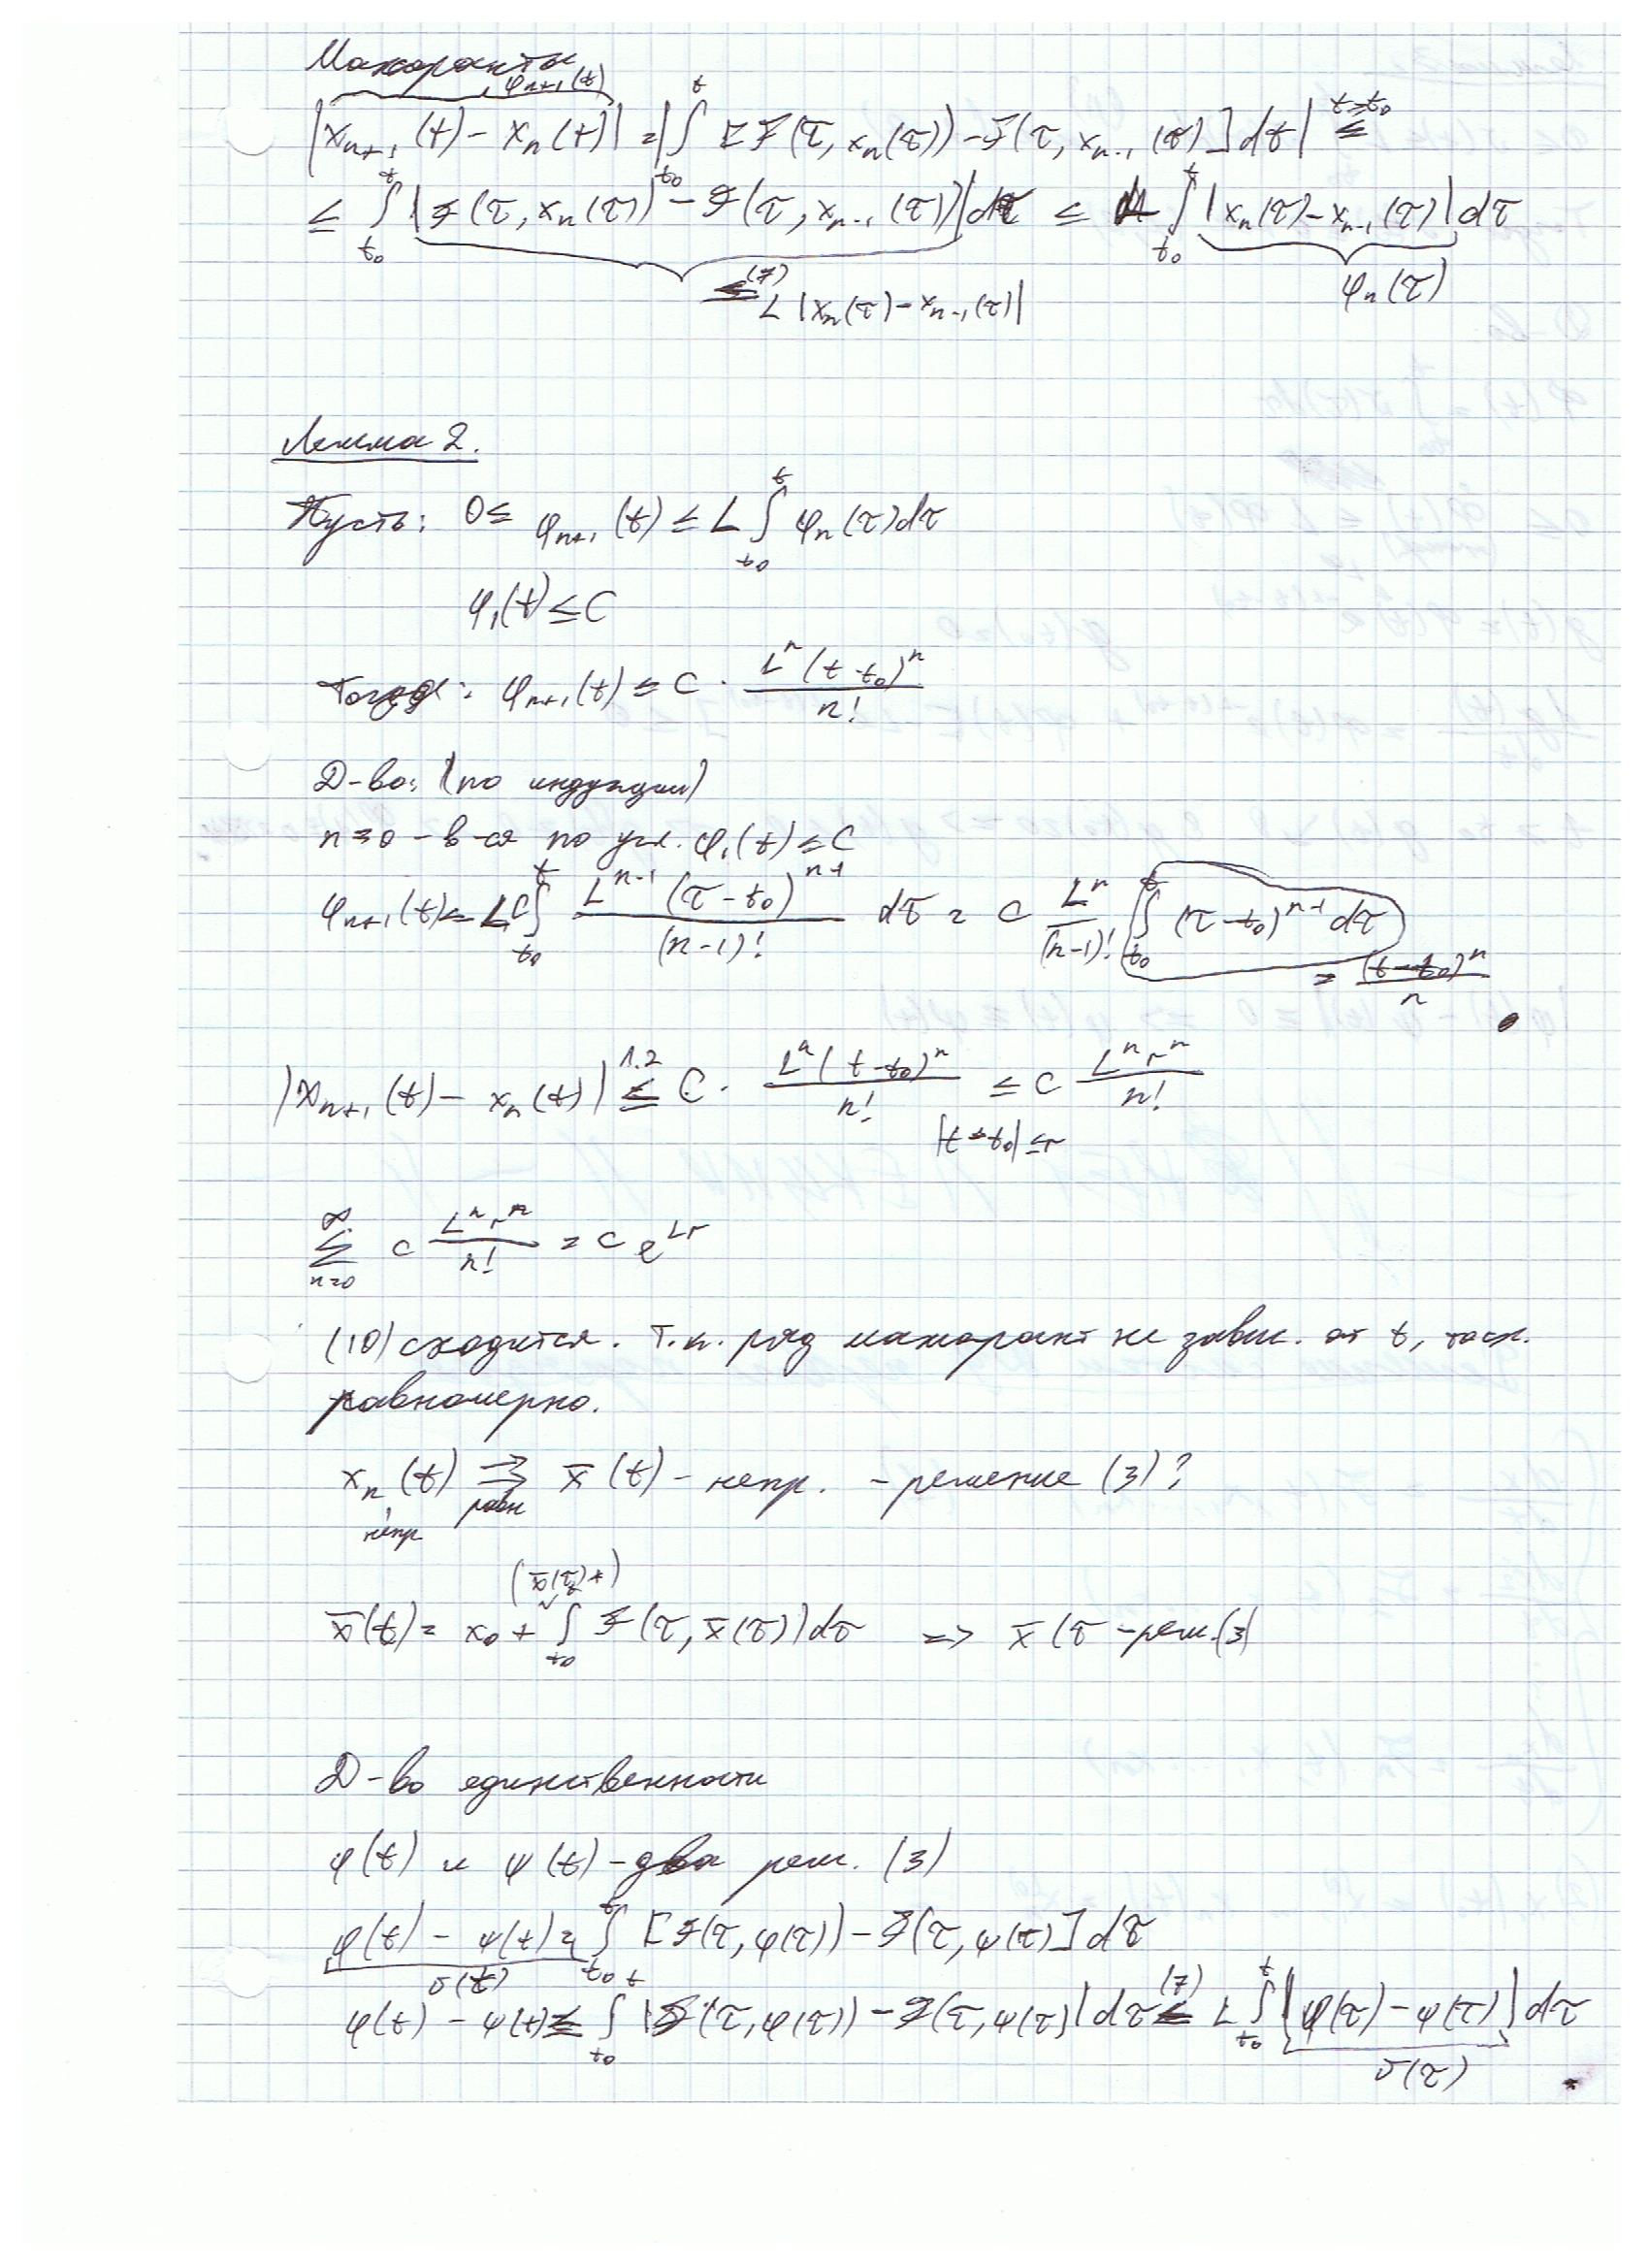 Мажоранты
|xₙ₊₁(t) - xₙ(t)| = |∫ₜ₀ᵗ [F(τ, xₙ(τ)) - F(τ, xₙ₋₁(τ)] dτ| ≤ (t≥t₀), φₙ₊₁(t)
≤ ∫ₜ₀ᵗ |F(τ, xₙ(τ)) - F(τ, xₙ₋₁(τ))| dτ ≤ ∫ₜ₀ᵗ |xₙ(τ) - xₙ₋₁(τ)| dτ
≤ (7) L |xₙ(τ) - xₙ₋₁(τ)|   φₙ(τ)
Лемма 2.
Пусть: 0 ≤ φₙ₊₁(t) ≤ L ∫ₜ₀ᵗ φₙ(τ)dτ
φ₁(t) ≤ C
Тогда: φₙ₊₁(t) ≤ C · Lⁿ(t-t₀)ⁿ / n!
Д-во: (по индукции)
n=0 - в-ся по усл. φ₁(t) ≤ C
φₙ₊₁(t) ≤ LC ∫ₜ₀ᵗ Lⁿ⁻¹(τ-t₀)ⁿ⁻¹ / (n-1)! dτ = C Lⁿ / (n-1)! ∫ₜ₀ᵗ (τ-t₀)ⁿ⁻¹ dτ
= (t-t₀)ⁿ / n
|xₙ₊₁(t) - xₙ(t)| ≤ (л.2) C · Lⁿ(t-t₀)ⁿ / n! ≤ C Lⁿrⁿ / n!
|t-t₀| ≤ r
∑ₙ₌₀^∞ C Lⁿrⁿ / n! = C e^(Lr)
(10) сходится. Т.к. ряд мажорант не завис. от t, то сх.
равномерно.
xₙ(t) ⇉ x̄(t) - непр. - решение (3)?
непр равн
(x̄(τ)*)
x̄(t) = x₀ + ∫ₜ₀ F(τ, x̄(τ))dτ => x̄(τ - реш.(3)
Д-во единственности
φ(t) и ψ(t) - два реш. (3)
φ(t) - ψ(t) = ∫ₜ₀ᵗ [F(τ, φ(τ)) - F(τ, ψ(τ)] dτ
υ(t)
φ(t) - ψ(t) ≤ ∫ₜ₀ᵗ |F(τ, φ(τ)) - F(τ, ψ(τ)| dτ ≤ (7) L ∫ₜ₀ᵗ |φ(τ) - ψ(τ)| dτ
υ(τ)